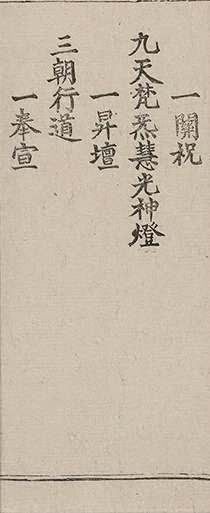 一關祝
九天梵炁慧光神燈
一昇壇
三朝行道
一奉宣